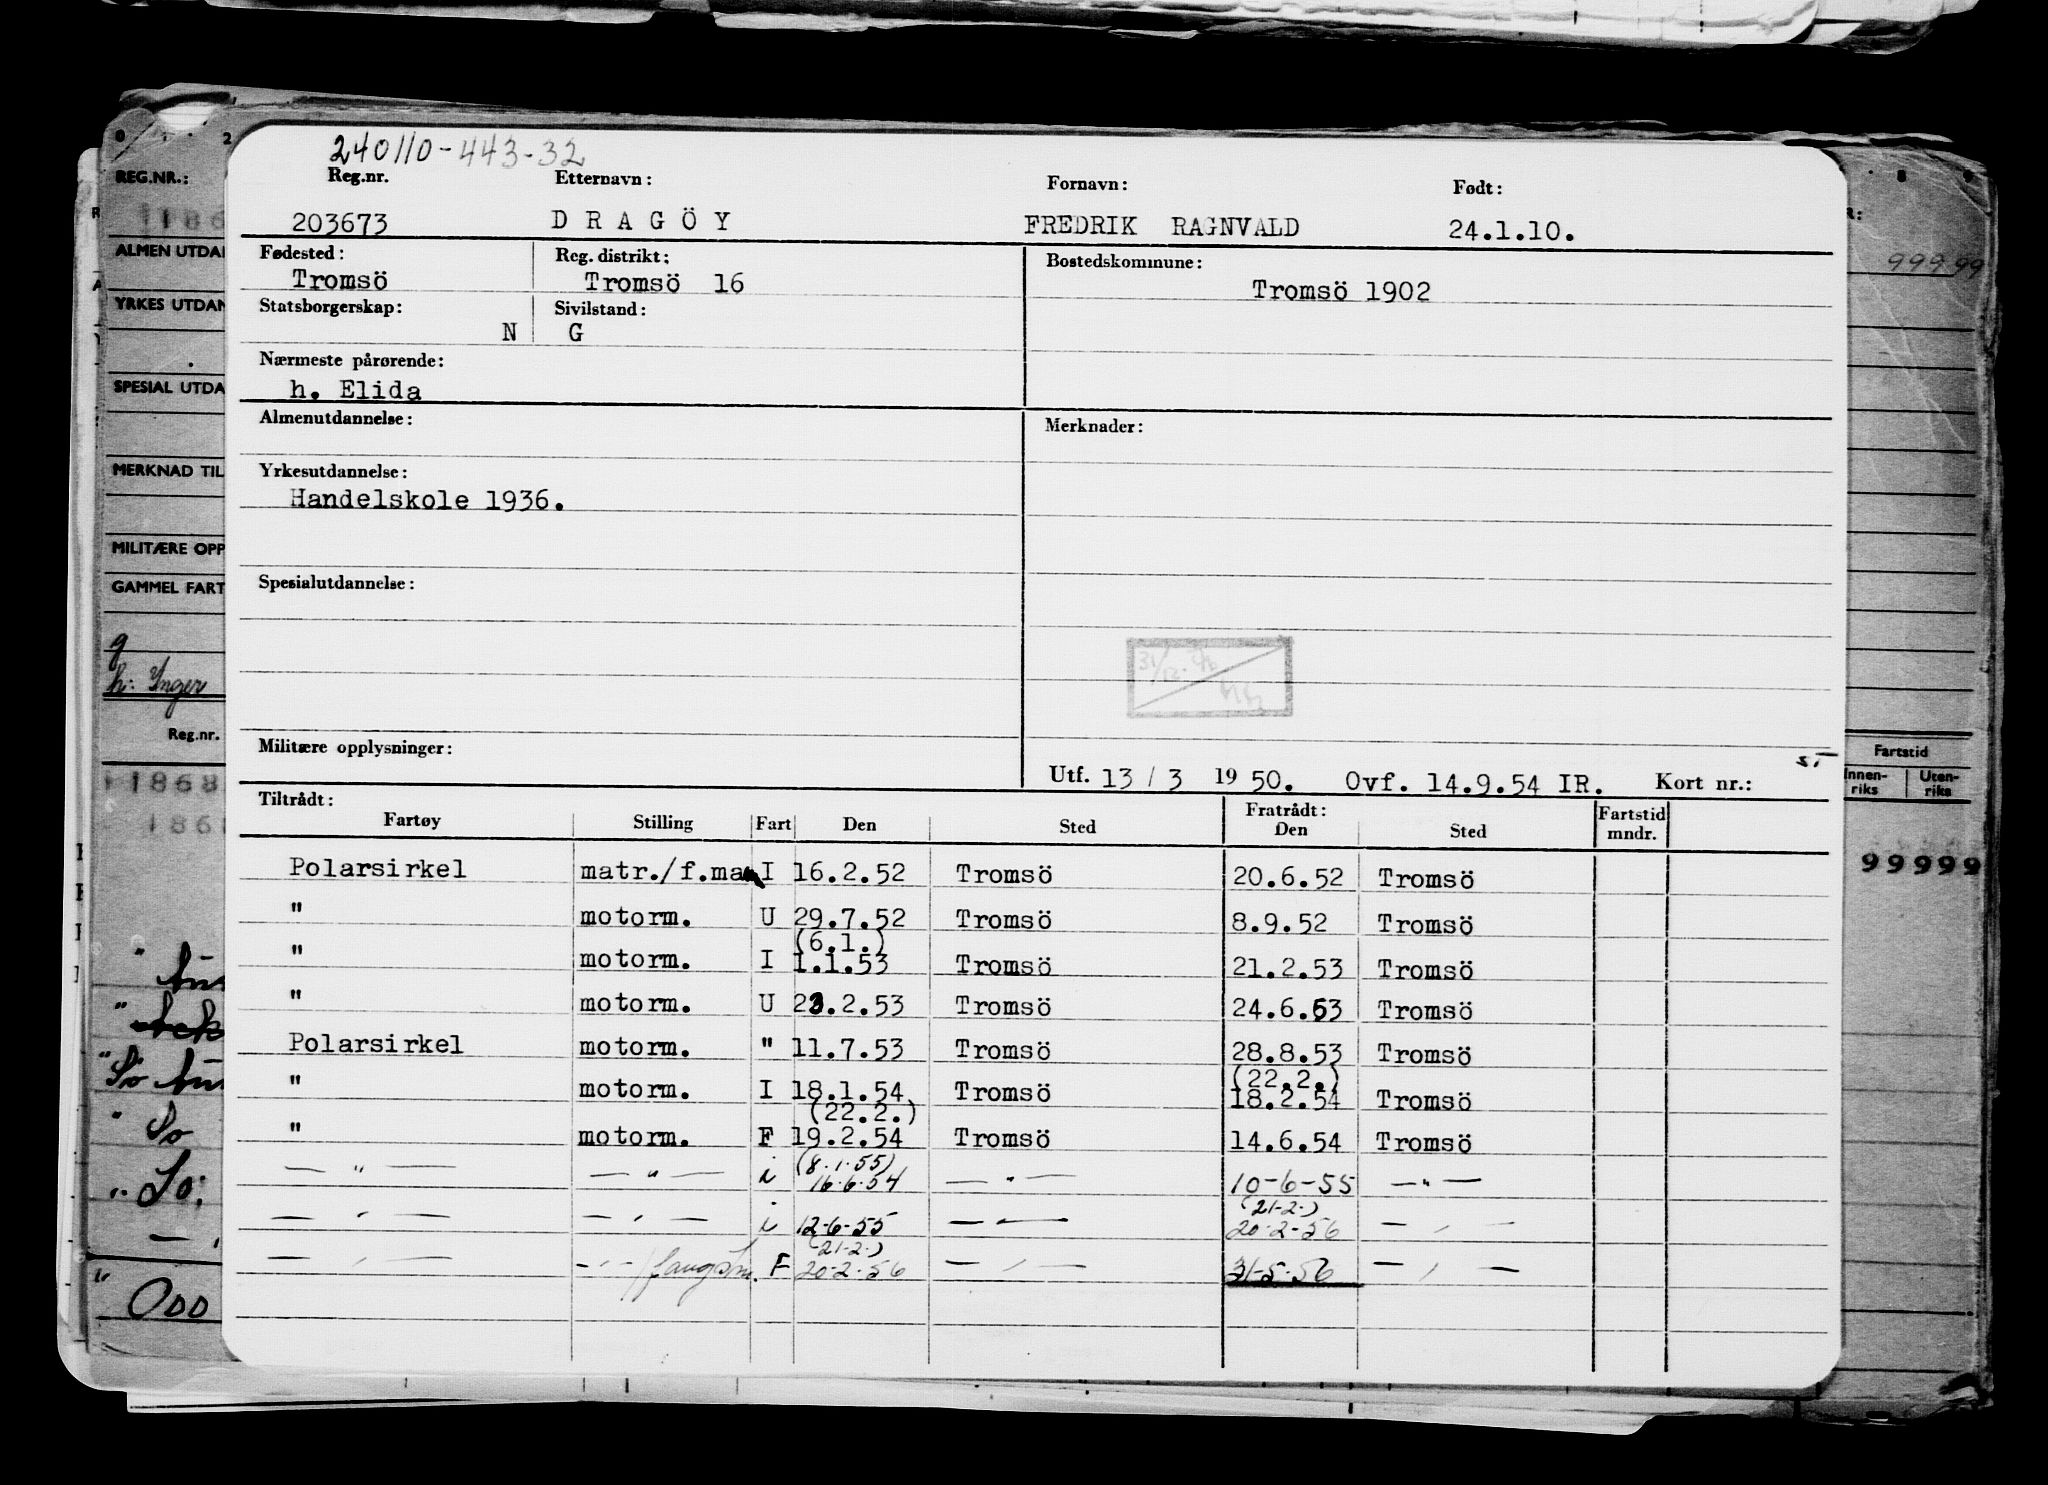 240110-443-32
Reg.nr. Etternavn: Fornavn: Født:
203673 DRAGÖY FREDRIK RAGNVALD 24.1.10.
Fødested: Reg. distrikt: Bostedskommune:
Tromsö Tromsö 16 Tromsö 1902
Statsborgerskap: Sivilstand:
N G
Nærmeste pårørende:
h. Elida
Almenutdannelse: Merknader:
Yrkesutdannelse:
Handelskole 1936.
Spesialutdannelse:
Militære opplysninger:
Utf. 13 / 3 19 50. Ovf. 14.9.54 IR. Kort nr.:
Tiltrådt: Fratrådt: Fartstid
Fartøy Stilling Fart Den Sted Den Sted mndr.
Polarsirkel matr./f.man I 16.2.52 Tromsö 20.6.52 Tromsö
" motorm. U 29.7.52 Tromsö 8.9.52 Tromsö
(6.1.)
" motorm. I 1.1.53 Tromsö 21.2.53 Tromsö
" motorm. U 23.2.53 Tromsö 24.6.53 Tromsö
Polarsirkel motorm. " 11.7.53 Tromsö 28.8.53 Tromsö
(22.2.)
" motorm. I 18.1.54 Tromsö 18.2.54 Tromsö
(22.2.)
" motorm. F 19.2.54 Tromsö 14.6.54 Tromsö
(8.1.55)
— " — — " — i 16.6.54 — " — 10-6-55 — " —
(21-2-)
— " — — " — i 12-6-55 — " — 20-2-56 — " —
(21-2-)
— " — — " — / fangstm. F 20-2-56 — " — 31-5-56 — " —
REG.NR.:
1186
ALMEN UTDAN
YRKES UTDAN
SPESIAL UTDA
MERKNAD TIL
MILITÆRE OPP
GAMMEL FART
g
h: Inger
Reg.nr.
1868
186
" So
" So:
Odd
99999
Fartstid
Innen-riks Uten-riks
99999